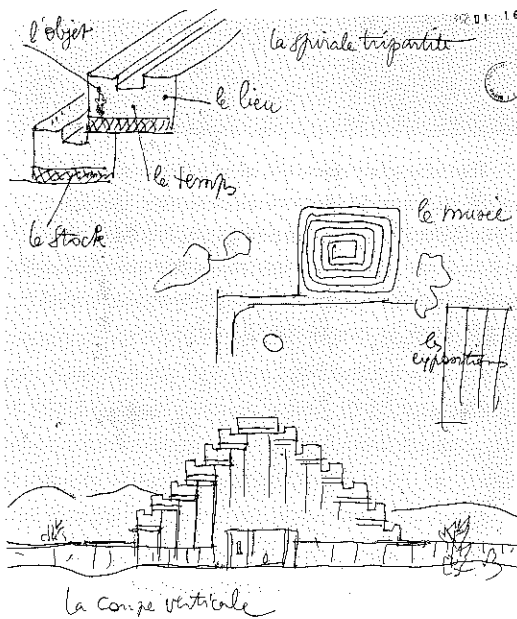 l'objet
la spirale tripartite
le lieu
le temps
le stock
le musée
les
expositions
la coupe verticale